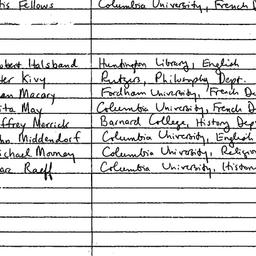 tis Fellows Columbia University, French D
obert Halsband Huntington Library, English
ter Kivy Rutgers, Philosophy Dept.
an Macary Fordham University, French Du
ita May Columbia University, French D
ffrey Merrick Barnard College, History Dep
hn Middendorf Columbia University, English
ichael Mooney Columbia University, Religio
arc Raeff Columbia University, Histor